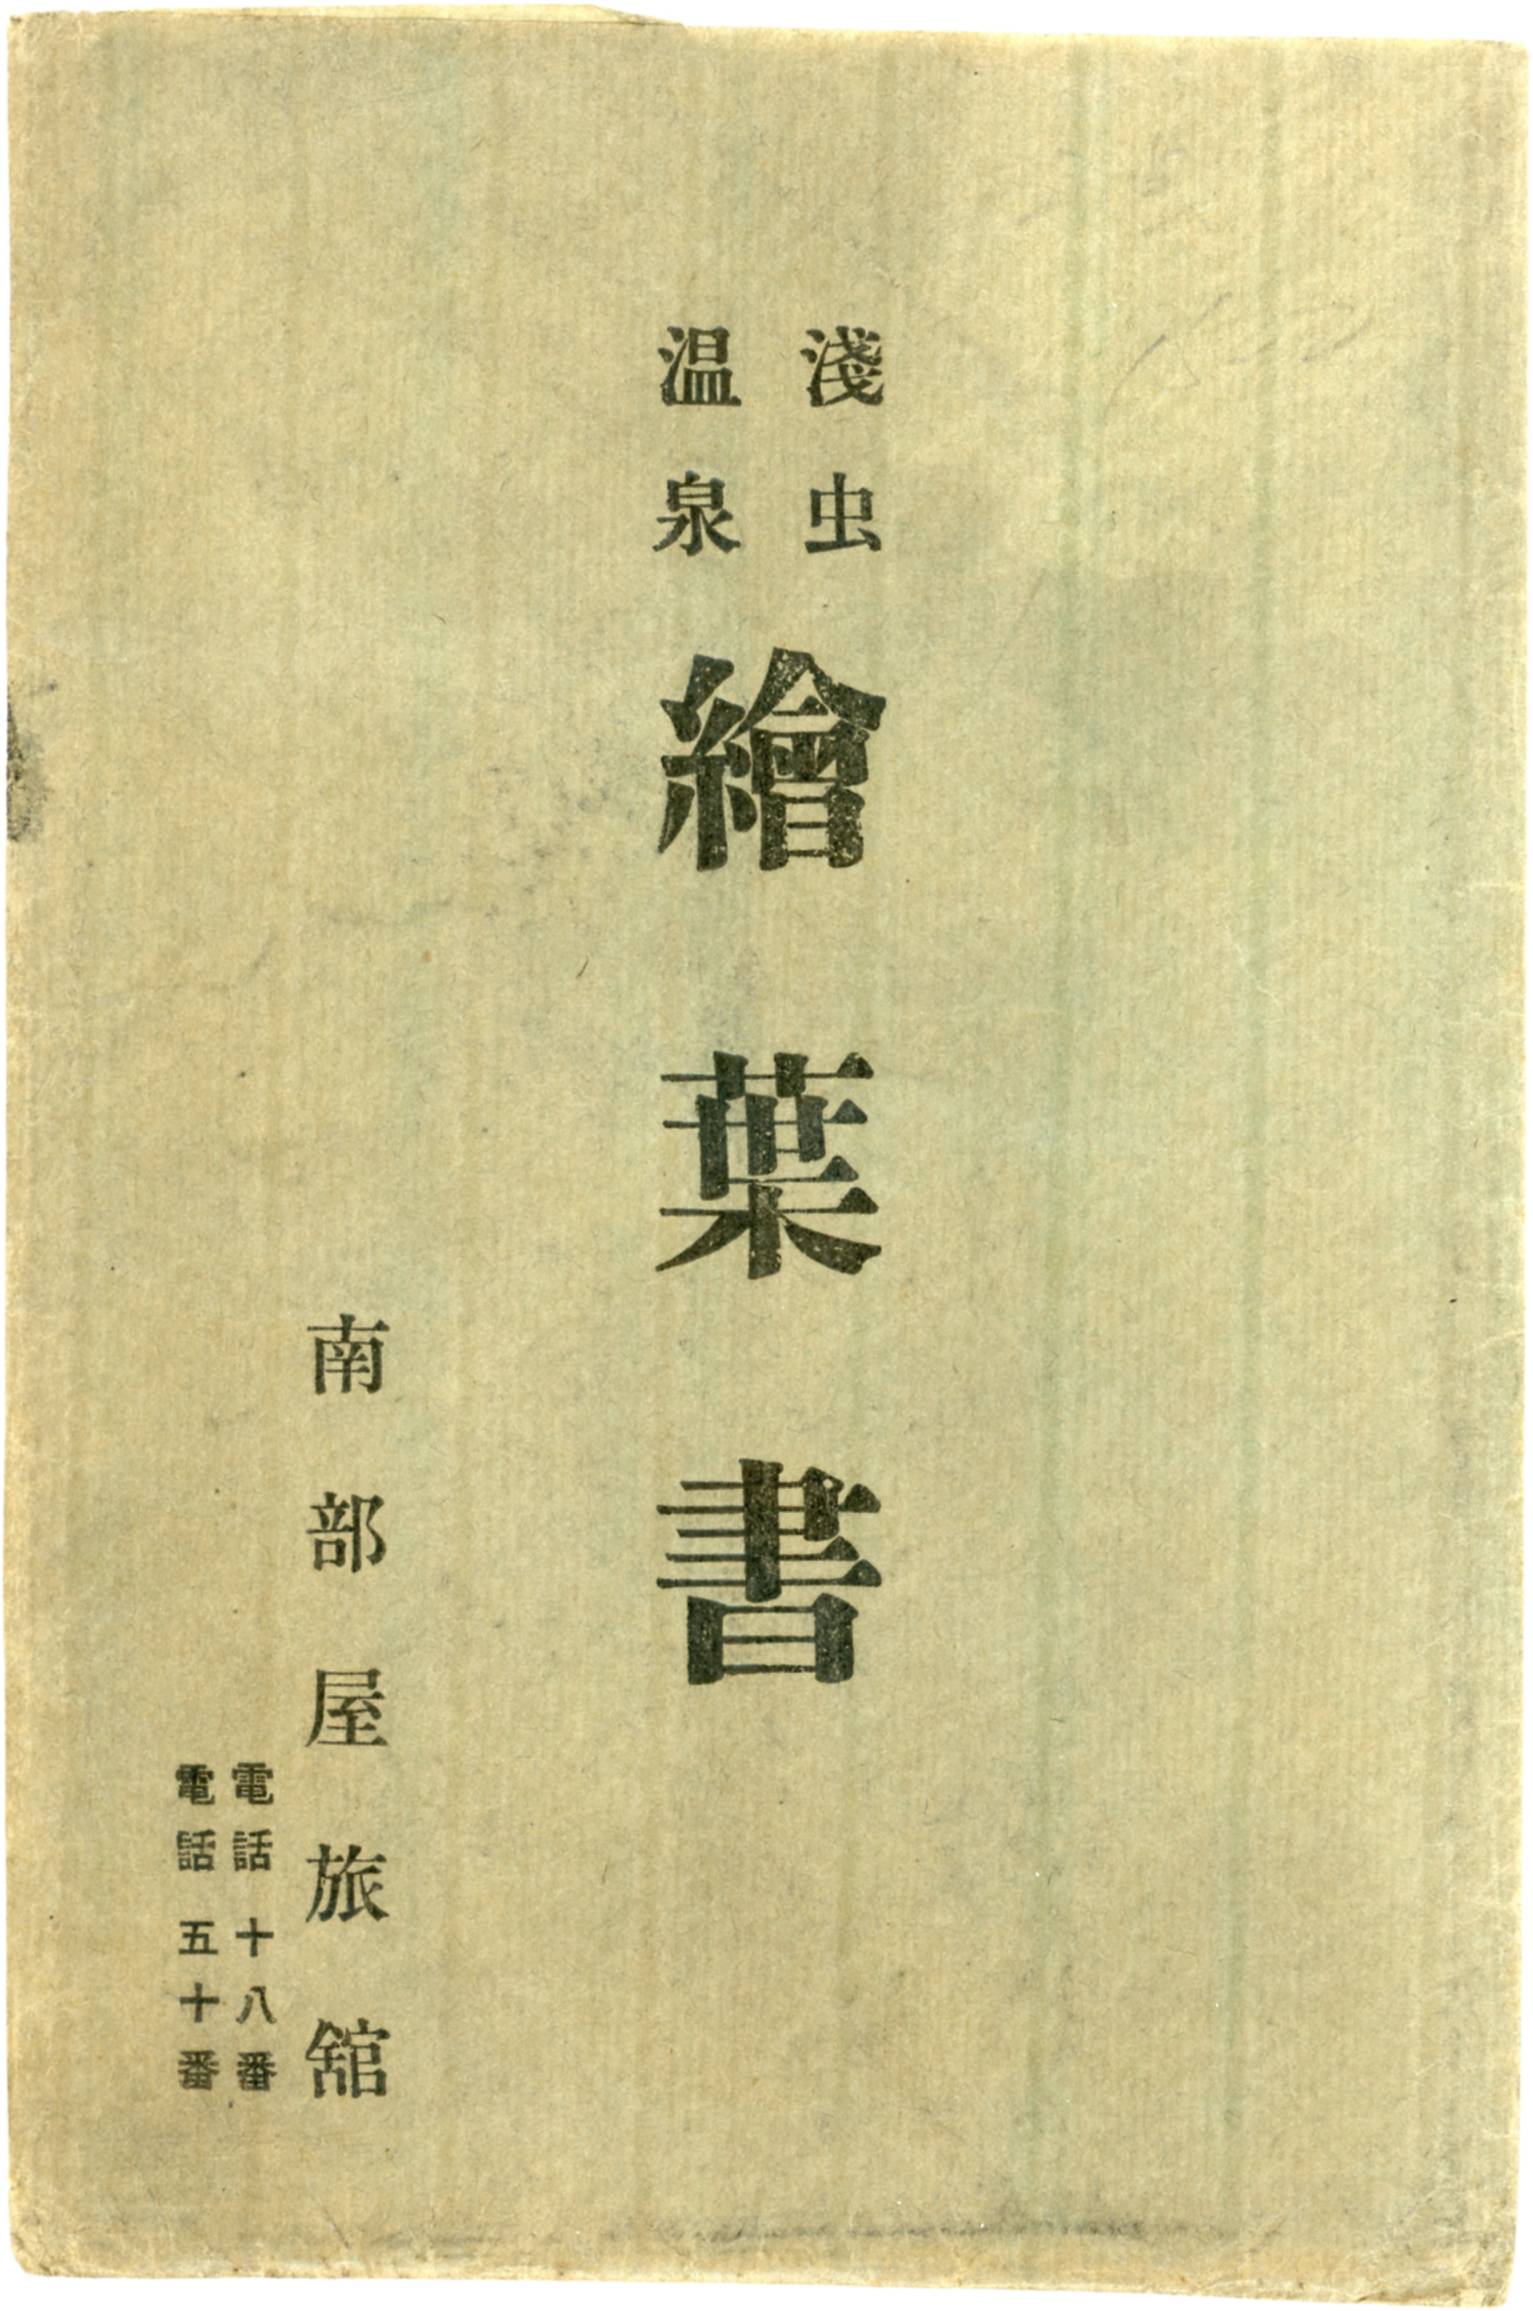 淺虫
温泉
繪葉書
南部屋旅舘
電話十八番
電話五十番